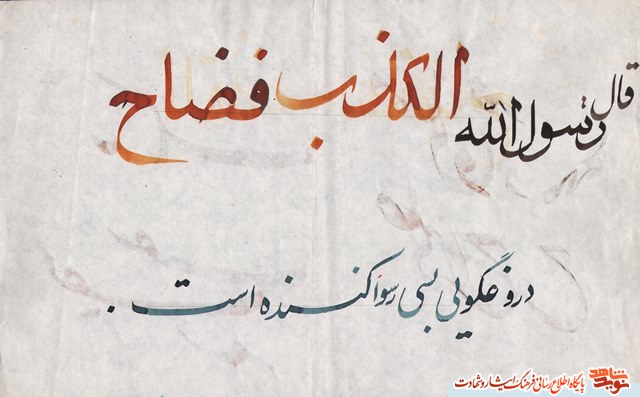 قال رسول الله الكذب فضاح
دروغگویی بسی رسوا کننده است.
نوید شاهد پایگاه اطلاع رسانی فرهنگ ایثار و شهادت